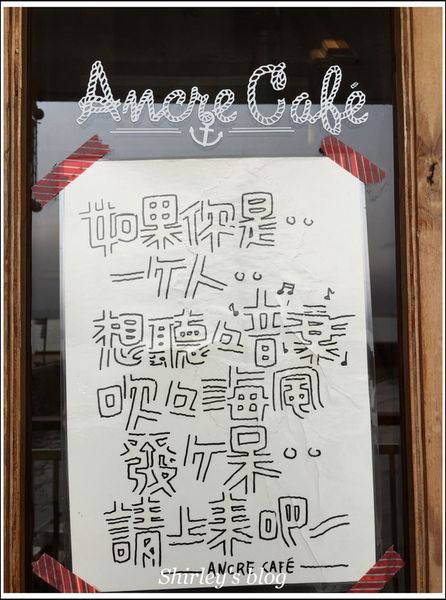 Ancre Café
如果你是..
一ケ人..
想聽々音樂
吹々海風
發ケ呆..
請上來吧~
ANCRE CAFÉ
Shirley's blog